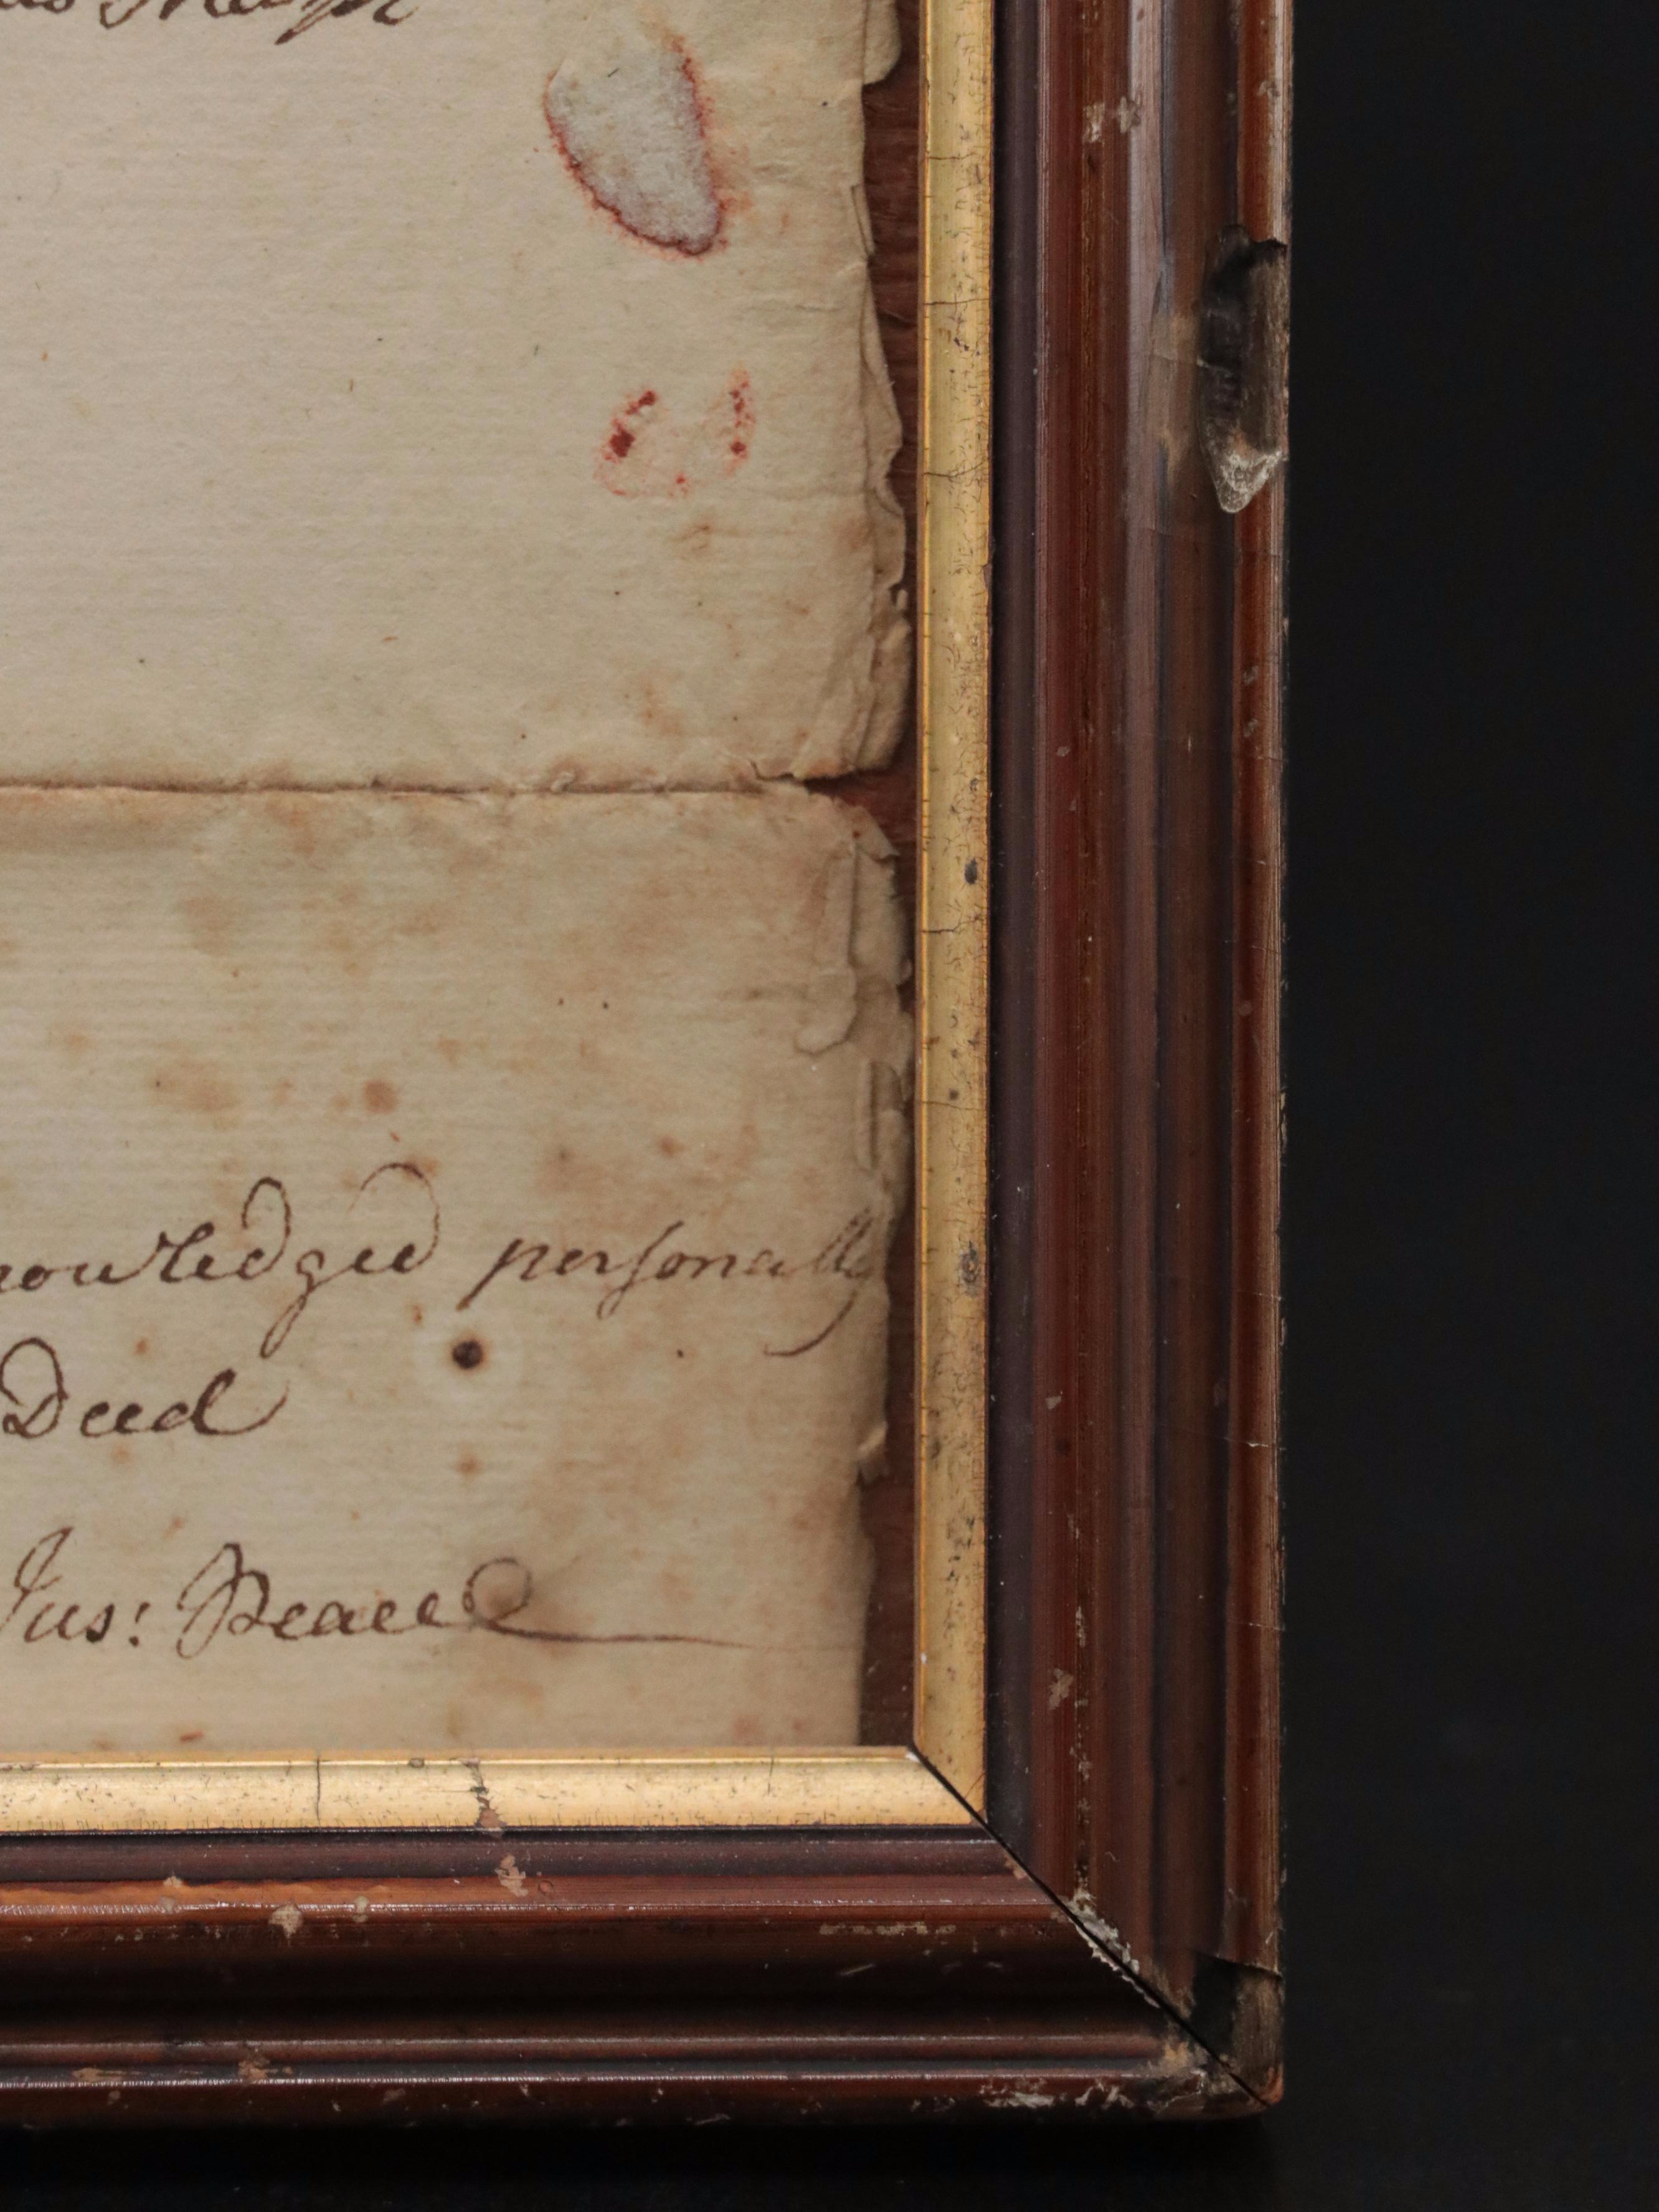 nowledged personally
Deed
Jus: Peace